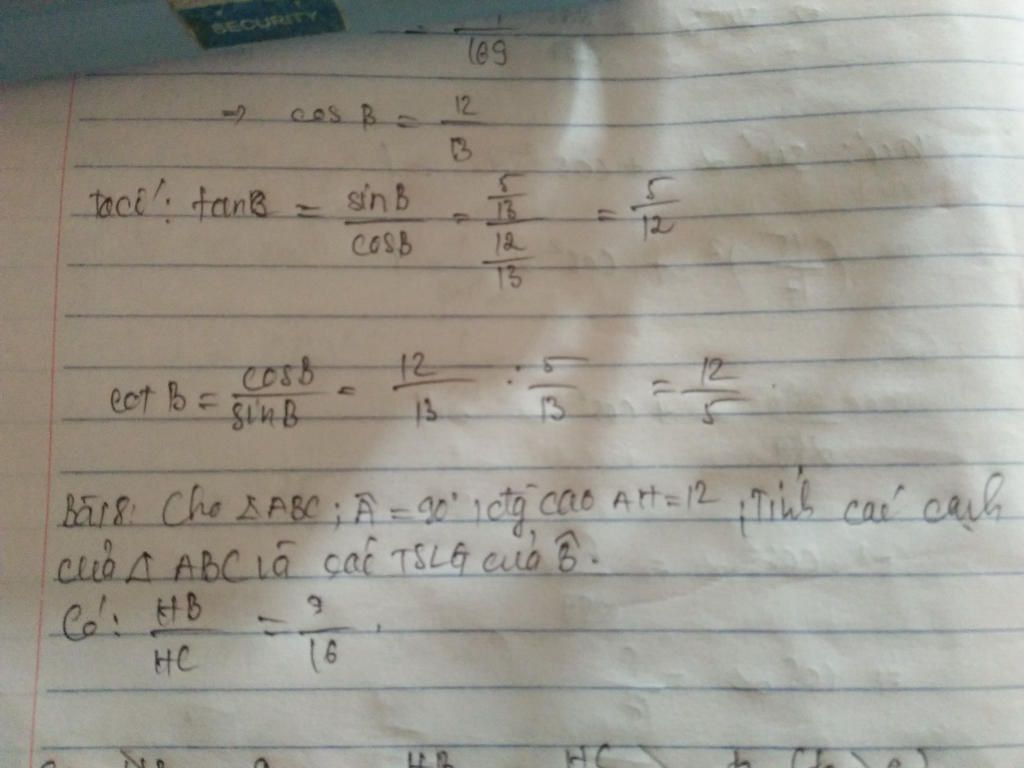 SECURITY
= 1/169
⇒ cos B = 12/13
ta có: tanB = sinB/cosB = (5/13)/(12/13) = 5/12
cot B = cosB/sinB = 12/13 : 5/13 = 12/5
Bài 8: Cho △ABC; Â = 90°; đg cao AH = 12; Tính các cạnh
của △ ABC và các TSLG của B̂.
Có: HB/HC = 9/16.
HB HC